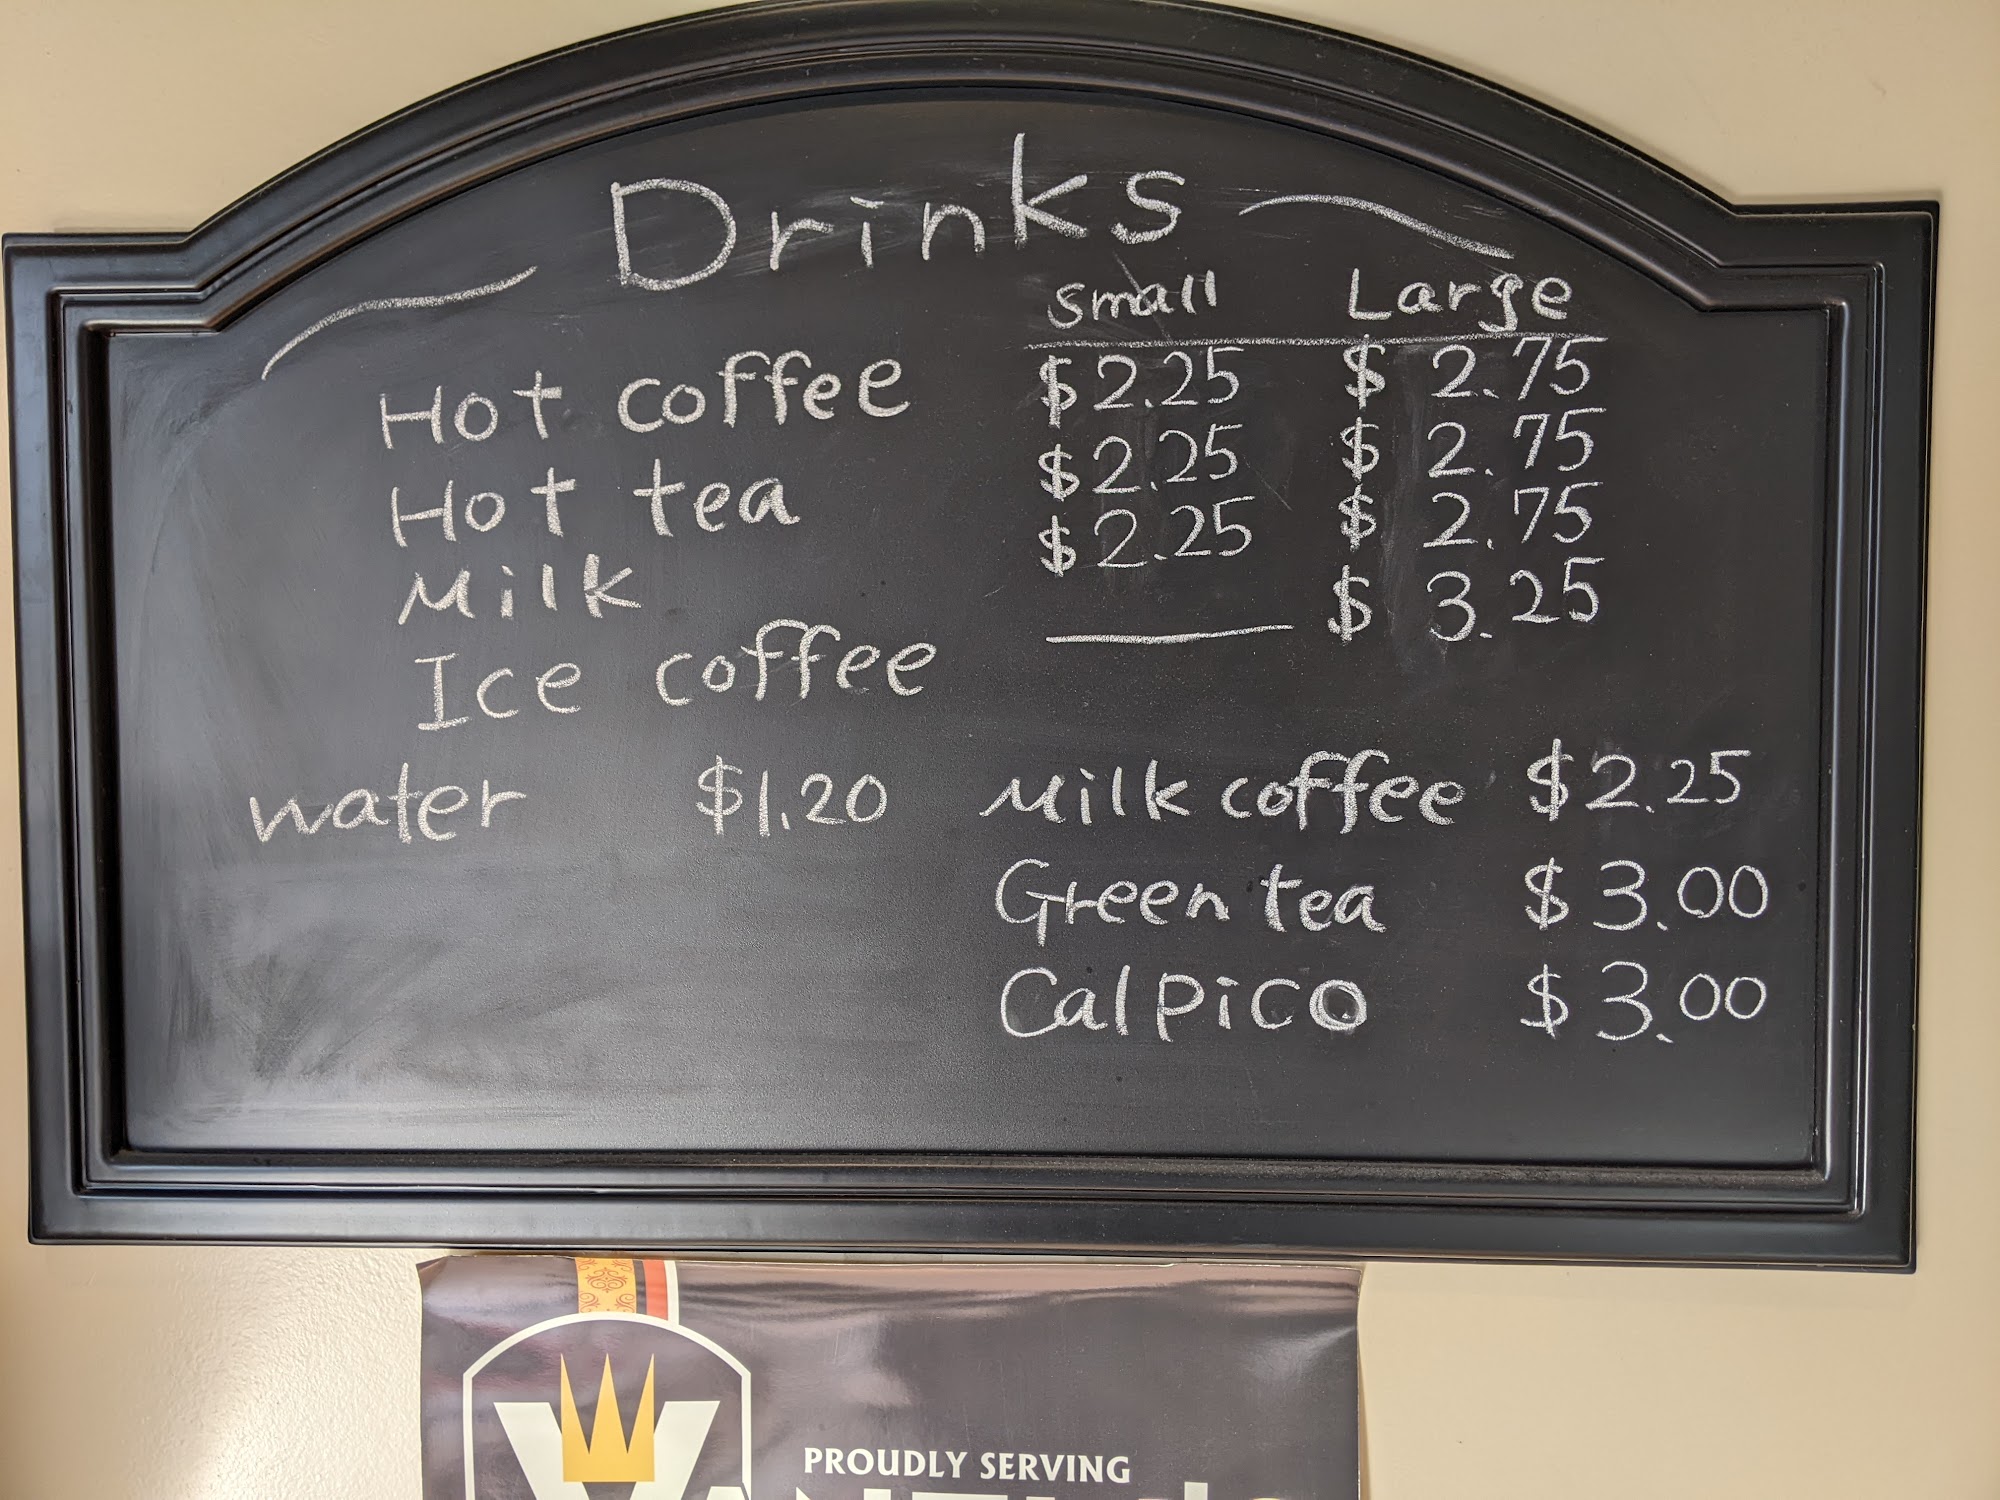 Drinks
Small Large
Hot coffee $2.25 $2.75
Hot tea $2.25 $2.75
Milk $2.25 $2.75
Ice coffee $3.25
water $1.20
Milk coffee $2.25
Green tea $3.00
Calpico $3.00
PROUDLY SERVING